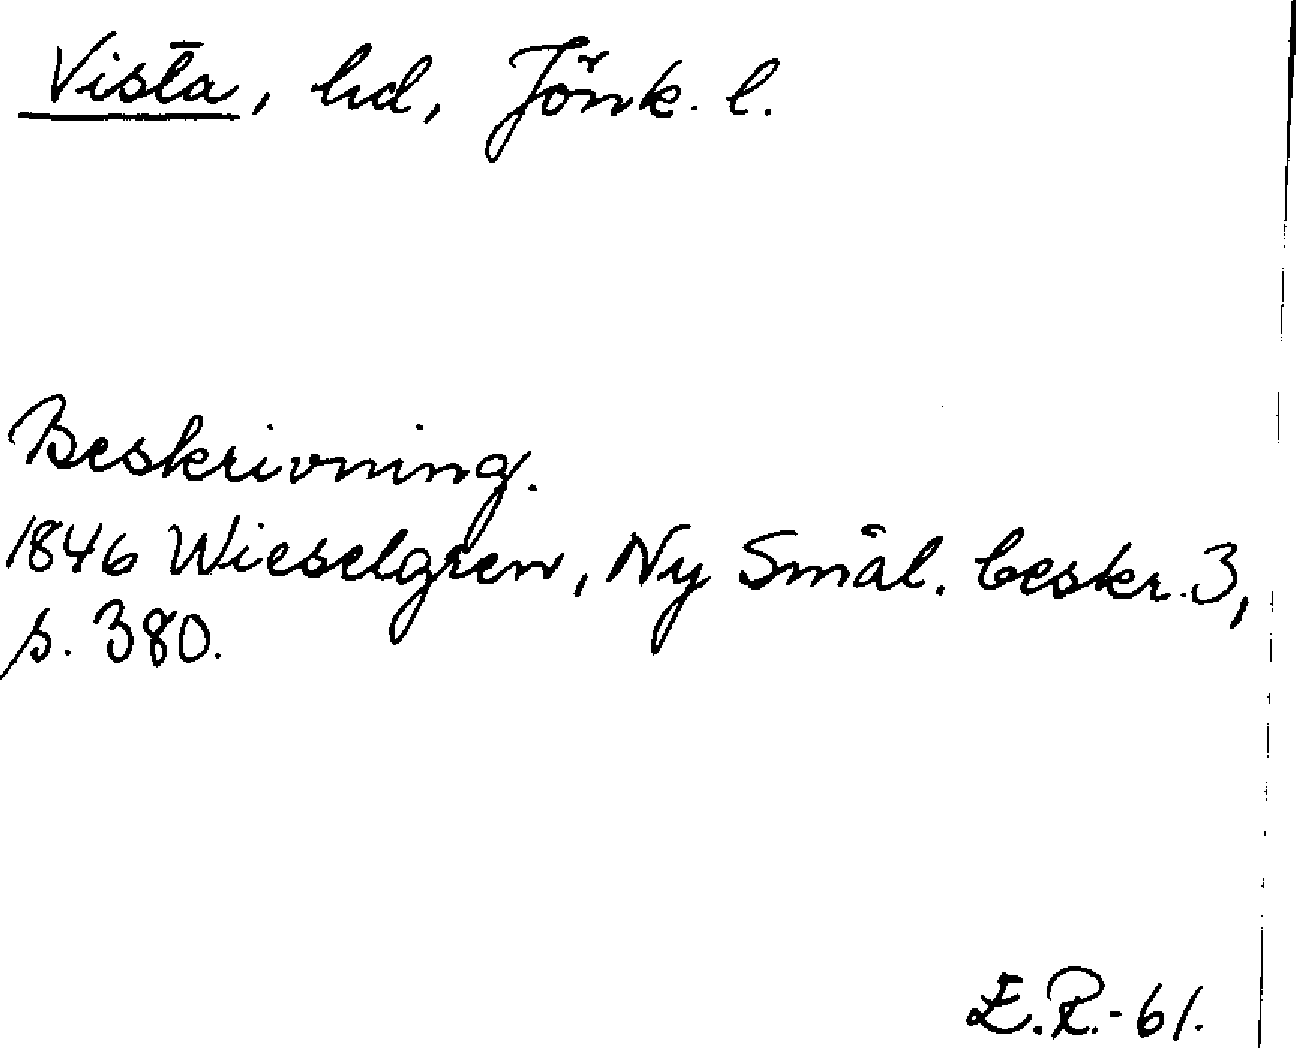 Vista, hd, Jönk. l.
Beskrivning.
1846 Wieselgren, Ny Smål. beskr. 3,
s. 380.
E.R.-61.